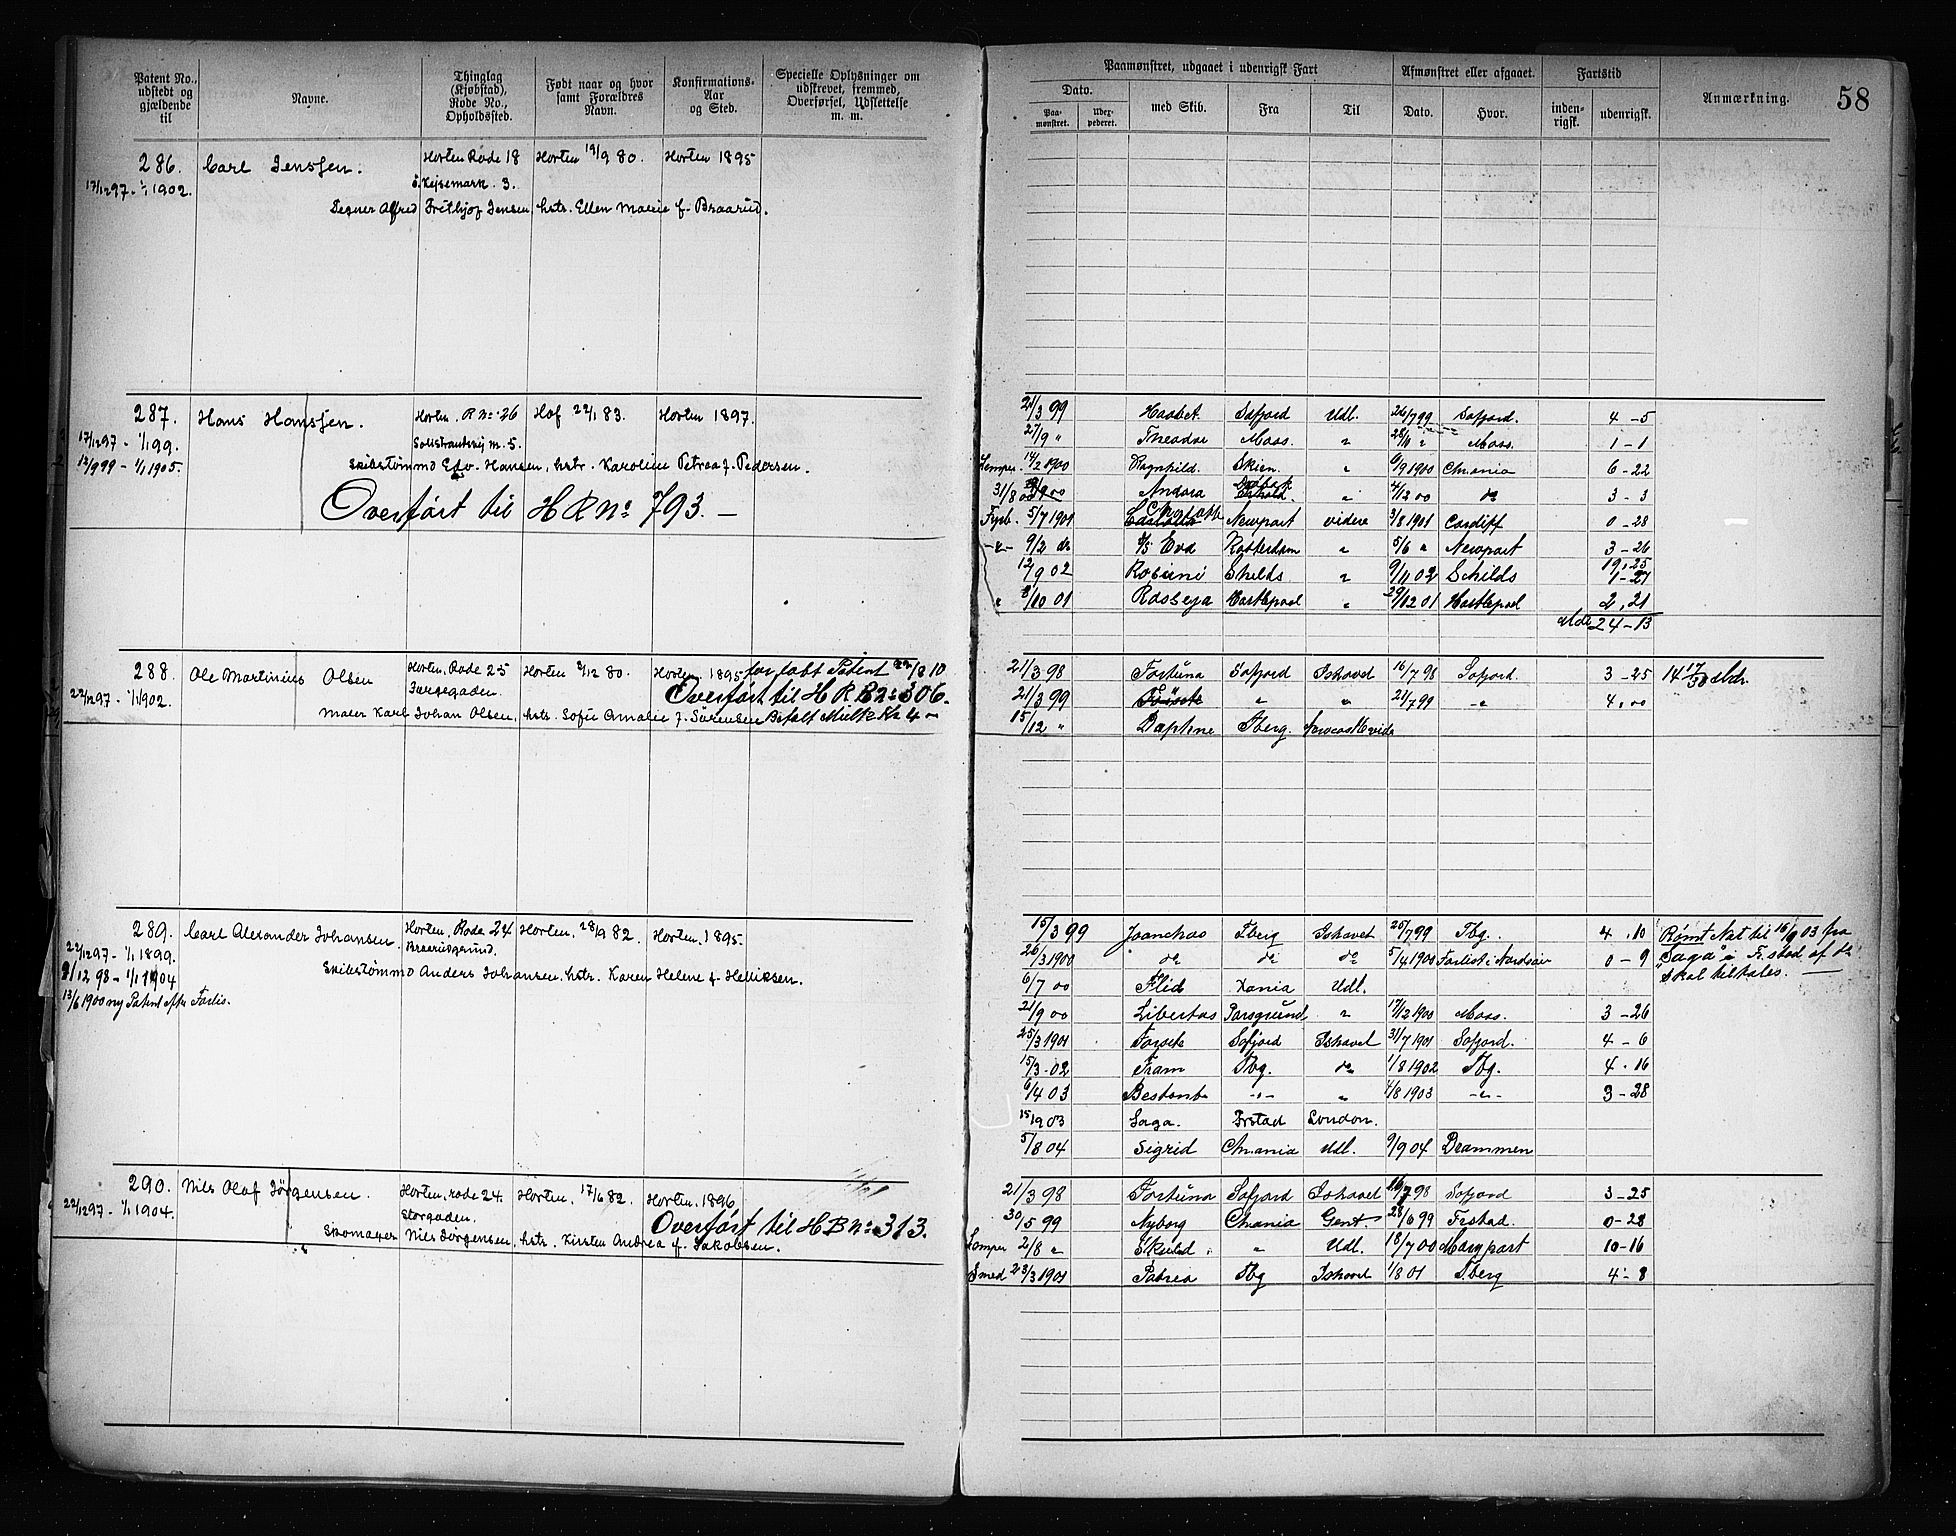 Patent No., udstedt og gjældende til
Navne.
Thinglag (Kjøbstad), Rode No., Opholdssted.
Født naar og hvor samt Forældres Navn.
Konfirmations-Aar og Sted.
Specielle Oplysninger om udskrevet, fremmed, Overførsel, Udslettelse m. m.
Paamønstret, udgaaet i udenrigsk Fart
Afmønstret eller afgaaet.
Fartstid
Anmærkning.
58
Dato.
Paa-mønstret.
med Skib.
Fra
Til
Dato.
Hvor.
inden-rigsk.
udenrigsk.
286. Carl Jenssen. Horten Rode 18 Horten 19/9 80. Horten 1895
17/12 97 - 1/1 1902. Kejsemark. 3.
Tegner Alfred Frithjof Jensen, hstr. Ellen Marie f. Braarud.
287. Hans Hanssen. Horten. R No 26 Hof 22/1 83. Horten 1897.
17/12 97 - 1/1 99.
12/9 99 - 1/1 1905. Skibstømmd Edv. Hansen, hstr. Karoline Petrea f. Pedersen.
Overført til H R No 793. —
21/3 99 Haabet Sofjord Udl. 26/7 99 Sofjord. 4 - 5
27/9 " Theodor Moss. " 28/11 " Moss. 1 - 1
14/2 1900 Ragnhild. Skien. " 6/9 1900 Chr.ania 6 - 22
31/8 00 Andora " 4/12 00 do 3 - 3
5/7 1901 Charlotte Newport videre 3/8 1901 Cardiff 0 - 28
9/2 do S/S Eva Rotterdam " 5/6 " Newport 3 - 26
12/9 02 Shelds " 9/11 02 Schilds 1 - 27
19,25
8/10 01 Rosseja Hartlepool " 29/12 01 Hartlepool 2, 21
Mdr 24 - 13
288. Ole Martinius Olsen Horten, Rode 25 Horten 2/12 80. Horten 1895 forfalt Patent 22/8 10
22/12 97 - 1/1 1902. Overført til H R B No 306.
Maler Karl Johan Olsen, hstr. Sofie Amalie f. Sørensen Befalt Mulkt Kr 4 00
21/3 98 Fortuna Sofjord Ishavet 16/7 98 Sofjord. 3 - 25 14 17/30 Mdr.
21/3 99 " " 21/7 99 -"- 4, 00
15/12 " Daphne Tberg.
289. Carl Alexander Johansen. Horten, Rode 24 Horten, 28/9 82. Horten, 1895.
22/12 97 - 1/1 1899. Braarudgrund.
9/12 98 - 1/1 1904 Skibstømmd Anders Johansen, hstr. Karen Helene f. Henriksen.
13/6 1900 ny Patent eftr Forlis.
15/3 99 Joanchas Tberg Ishavet 25/7 99 Tbg. 4, 10 Rømt Nat til 16/9 03 fra
26/3 1900 do do do 5/4 1900 Forlist i Nordsøen 0 - 9 "Saga" i Fr.stad af do
6/7 00 Flid Xania Udl. skal tiltales. —
21/9 00 Libertas Porsgrund " 17/12 1900 Moss. 3 - 26
25/3 1901 Forsete Sofjord Ishavet 31/7 1901 Sofjord. 4 - 6
15/3 - 02 Fram Tbg. do 1/8 1902 Tbg. 4 - 16
6/4 03 -"- " 4/8 1903 -"- 3 - 28
15/9 03 Saga. Frstad London.
5/8 04 Sigrid Chr.ania Udl. 9/9 04 Drammen
290. Nils Olaf Jörgensen. Horten, rode 24. Horten. 17/6 82. Horten. 1896
22/12 97 - 1/1 1904. Storgaden. Overført til H B No 313.
Skomager Nils Jörgensen, hstr. Kirsten Andrea f. Jakobsen.
21/3 98 Fortuna Sofjord Ishavet 16/7 98 Sofjord 3 - 25
30/5 99 Nyborg Chr.ania Gent. 28/6 99 Frstad. 0 - 28
2/8 " Skuld " Udl. 18/7 00 10 - 16
Smed 23/3 1901 Patria Tbg Ishavet 1/8 01 Tberg 4 - 8